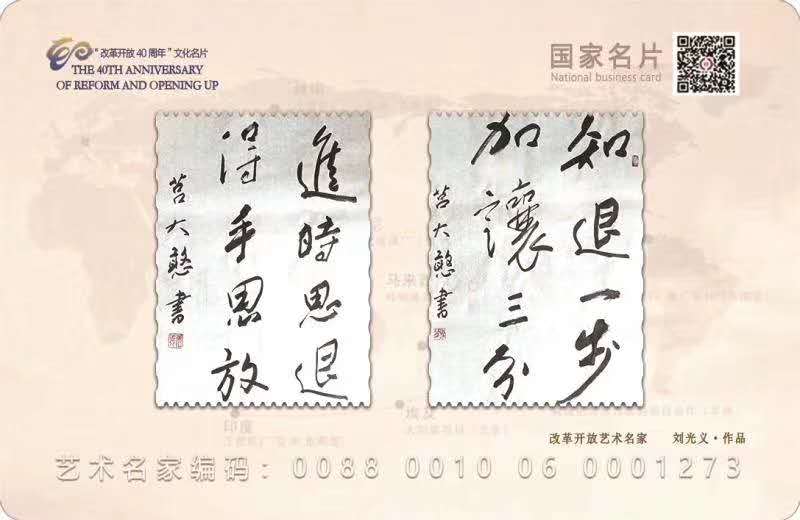 “改革开放40周年”文化名片
THE 40TH ANNIVERSARY
OF REFORM AND OPENING UP
国家名片
National business card
進時思退
得手思放
莒大憨書
知退一步
加讓三分
莒大憨書
印度
埃及
改革开放艺术名家 刘光义·作品
艺术名家编码：0088 0010 06 0001273